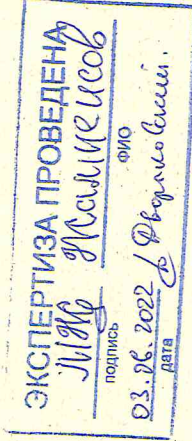 ЭКСПЕРТИЗА ПРОВЕДЕНА
Жамкеисов
подпись ФИО
03.06.2022 Дворниковский.
дата